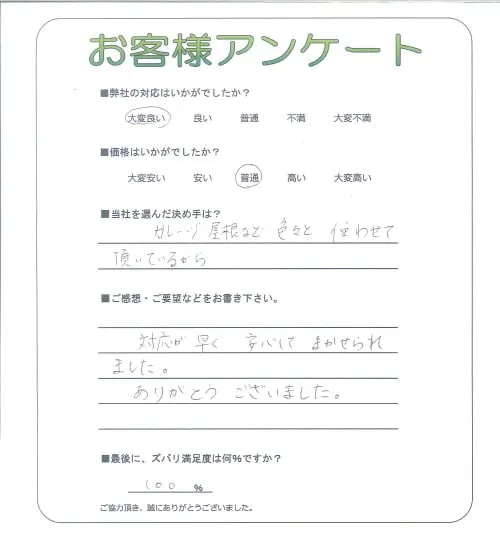 お客様アンケート
■弊社の対応はいかがでしたか？
大変良い 良い 普通 不満 大変不満
■価格はいかがでしたか？
大変安い 安い 普通 高い 大変高い
■当社を選んだ決め手は？
ガレージ 屋根など 色々と 使わせて
頂いているから
■ご感想・ご要望などをお書き下さい。
対応が 早く 安心して まかせられ
ました。
ありがとう ございました。
■最後に、ズバリ満足度は何％ですか？
100 ％
ご協力頂き、誠にありがとうございました。